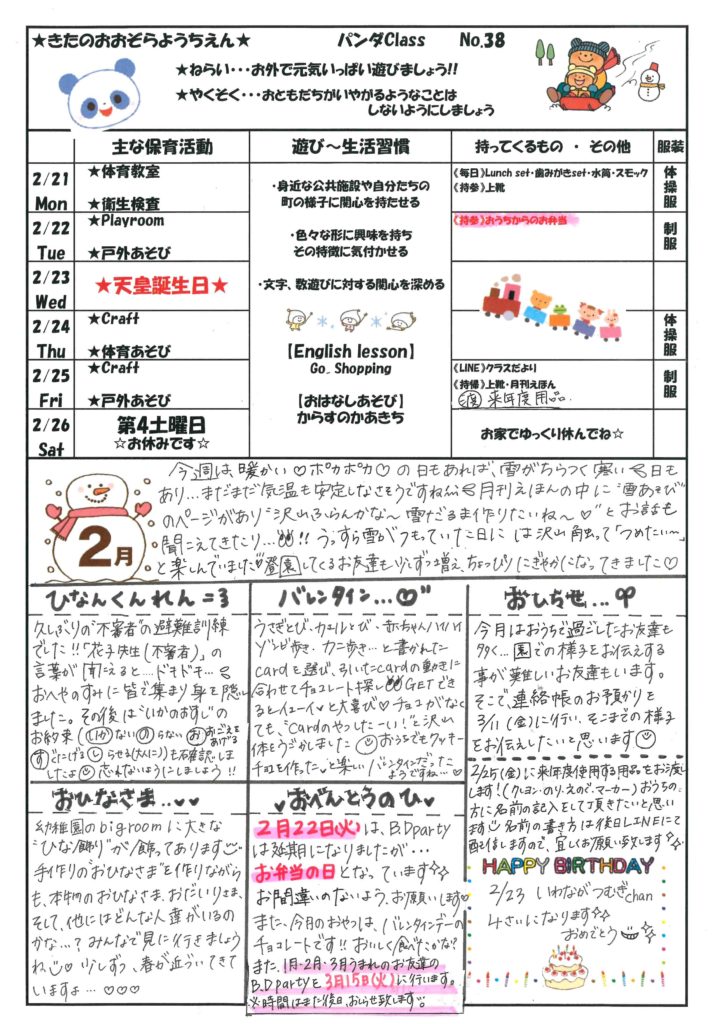 ★きたのおおぞらようちえん★ パンダClass No.38
★ねらい・・・お外で元気いっぱい遊びましょう!!
★やくそく・・・おともだちがいやがるようなことは
しないようにしましょう
主な保育活動 遊び～生活習慣 持ってくるもの ・ その他 服装
2/21 Mon
★体育教室
★衛生検査
2/22 Tue
★Playroom
★戸外あそび
2/23 Wed
★天皇誕生日★
2/24 Thu
★Craft
★体育あそび
2/25 Fri
★Craft
★戸外あそび
2/26 Sat
第4土曜日
☆お休みです☆
・身近な公共施設や自分たちの
町の様子に関心を持たせる
・色々な形に興味を持ち
その特徴に気付かせる
・文字、数遊びに対する関心を深める
【English lesson】
Go Shopping
【おはなしあそび】
からすのかあきち
《毎日》Lunch set・歯みがきset・水筒・スモック
《持参》上靴
《持参》おうちからのお弁当
《LINE》クラスだより
《持帰》上靴・月刊えほん
来年度用品
お家でゆっくり休んでね☆
体操服
制服
体操服
制服
2月
今週は暖かい♡ポカポカ♡の日もあれば、雪がちらつく寒い日も
あり…まだまだ気温も安定しなさそうですね 月刊えほんの中に"雪あそび"
のページがあり"沢山ふらんかな〜 雪だるま作りたいね〜♡"とお話も
聞こえてきたり…!! うっすら雪がつもっていた日には沢山触って「つめたい〜」
と楽しんでいました 登園してくるお友達も少しずつ増え、ちょっぴりにぎやかになってきました♡
ひなんくんれん=3
久しぶりの"不審者"の避難訓練
でした!!「花子先生(不審者)」の
言葉が聞こえると…ドキドキ…
おへやのすみに皆で集まり身を隠し
ました。その後は"いかのおすし"の
お約束 いかない のらない おおごえをあげる
すぐにげる しらせる(大人に) も再確認しま
したよ 忘れないようにしましょう!!
バレンタイン…♡"
うさぎとび・カエルとび・赤ちゃんハイハイ
ゾンビ歩き・カニ歩き…と書かれた
cardを選び、引いたcardの動きに
合わせてチョコレート探し GETでき
るとイェーイ♡と大喜び♡チョコがなく
ても、"Cardのやつしたーい!"と沢山
体をうごかしました おうちでもクッキー
チョコを作った♡と楽しいバレンタインだった
ようですね…♡
おしらせ…
今月はおうちで過ごしたお友達も
多く…園での様子をお伝えする
事が難しいお友達もいます。
そこで、連絡帳のお預かりを
3/11(金)に行い、そこまでの様子
をお伝えしたいと思います
2/25(金)に来年度使用する用品をお渡し
します!(クレヨン・のり・えのぐ・マーカー)おうちの
方に名前の記入をして頂きたいと思い
ます 名前の書き方は後日LINEにて
配信しますので、宜しくお願い致します
HAPPY BIRTHDAY
2/23 いわながつむぎchan
4さいになります
おめでとう
おひなさま…
幼稚園のbigroomに大きな
"ひな飾り"が飾ってあります
手作りの"おひなさま"を作りながら
も、本物のおひなさま、おだいりさま、
そして、他にはどんな人達がいるの
かな…?みんなで見に行きましょう
ね 少しずつ、春が近づいてきて
いますよ…♡♡♡
おべんとうのひ
2月22日(火)は、B.Dparty
は延期になりましたが…
お弁当の日となっています
お間違いのないよう、お願いします♡
また、今月のおやつは、バレンタインデーの
チョコレートです!!おいしく食べたかな?
また、1月・2月・3月うまれのお友達の
B.Dpartyを3月15日(火)に行います。
※時間はまた後日、おしらせ致します。